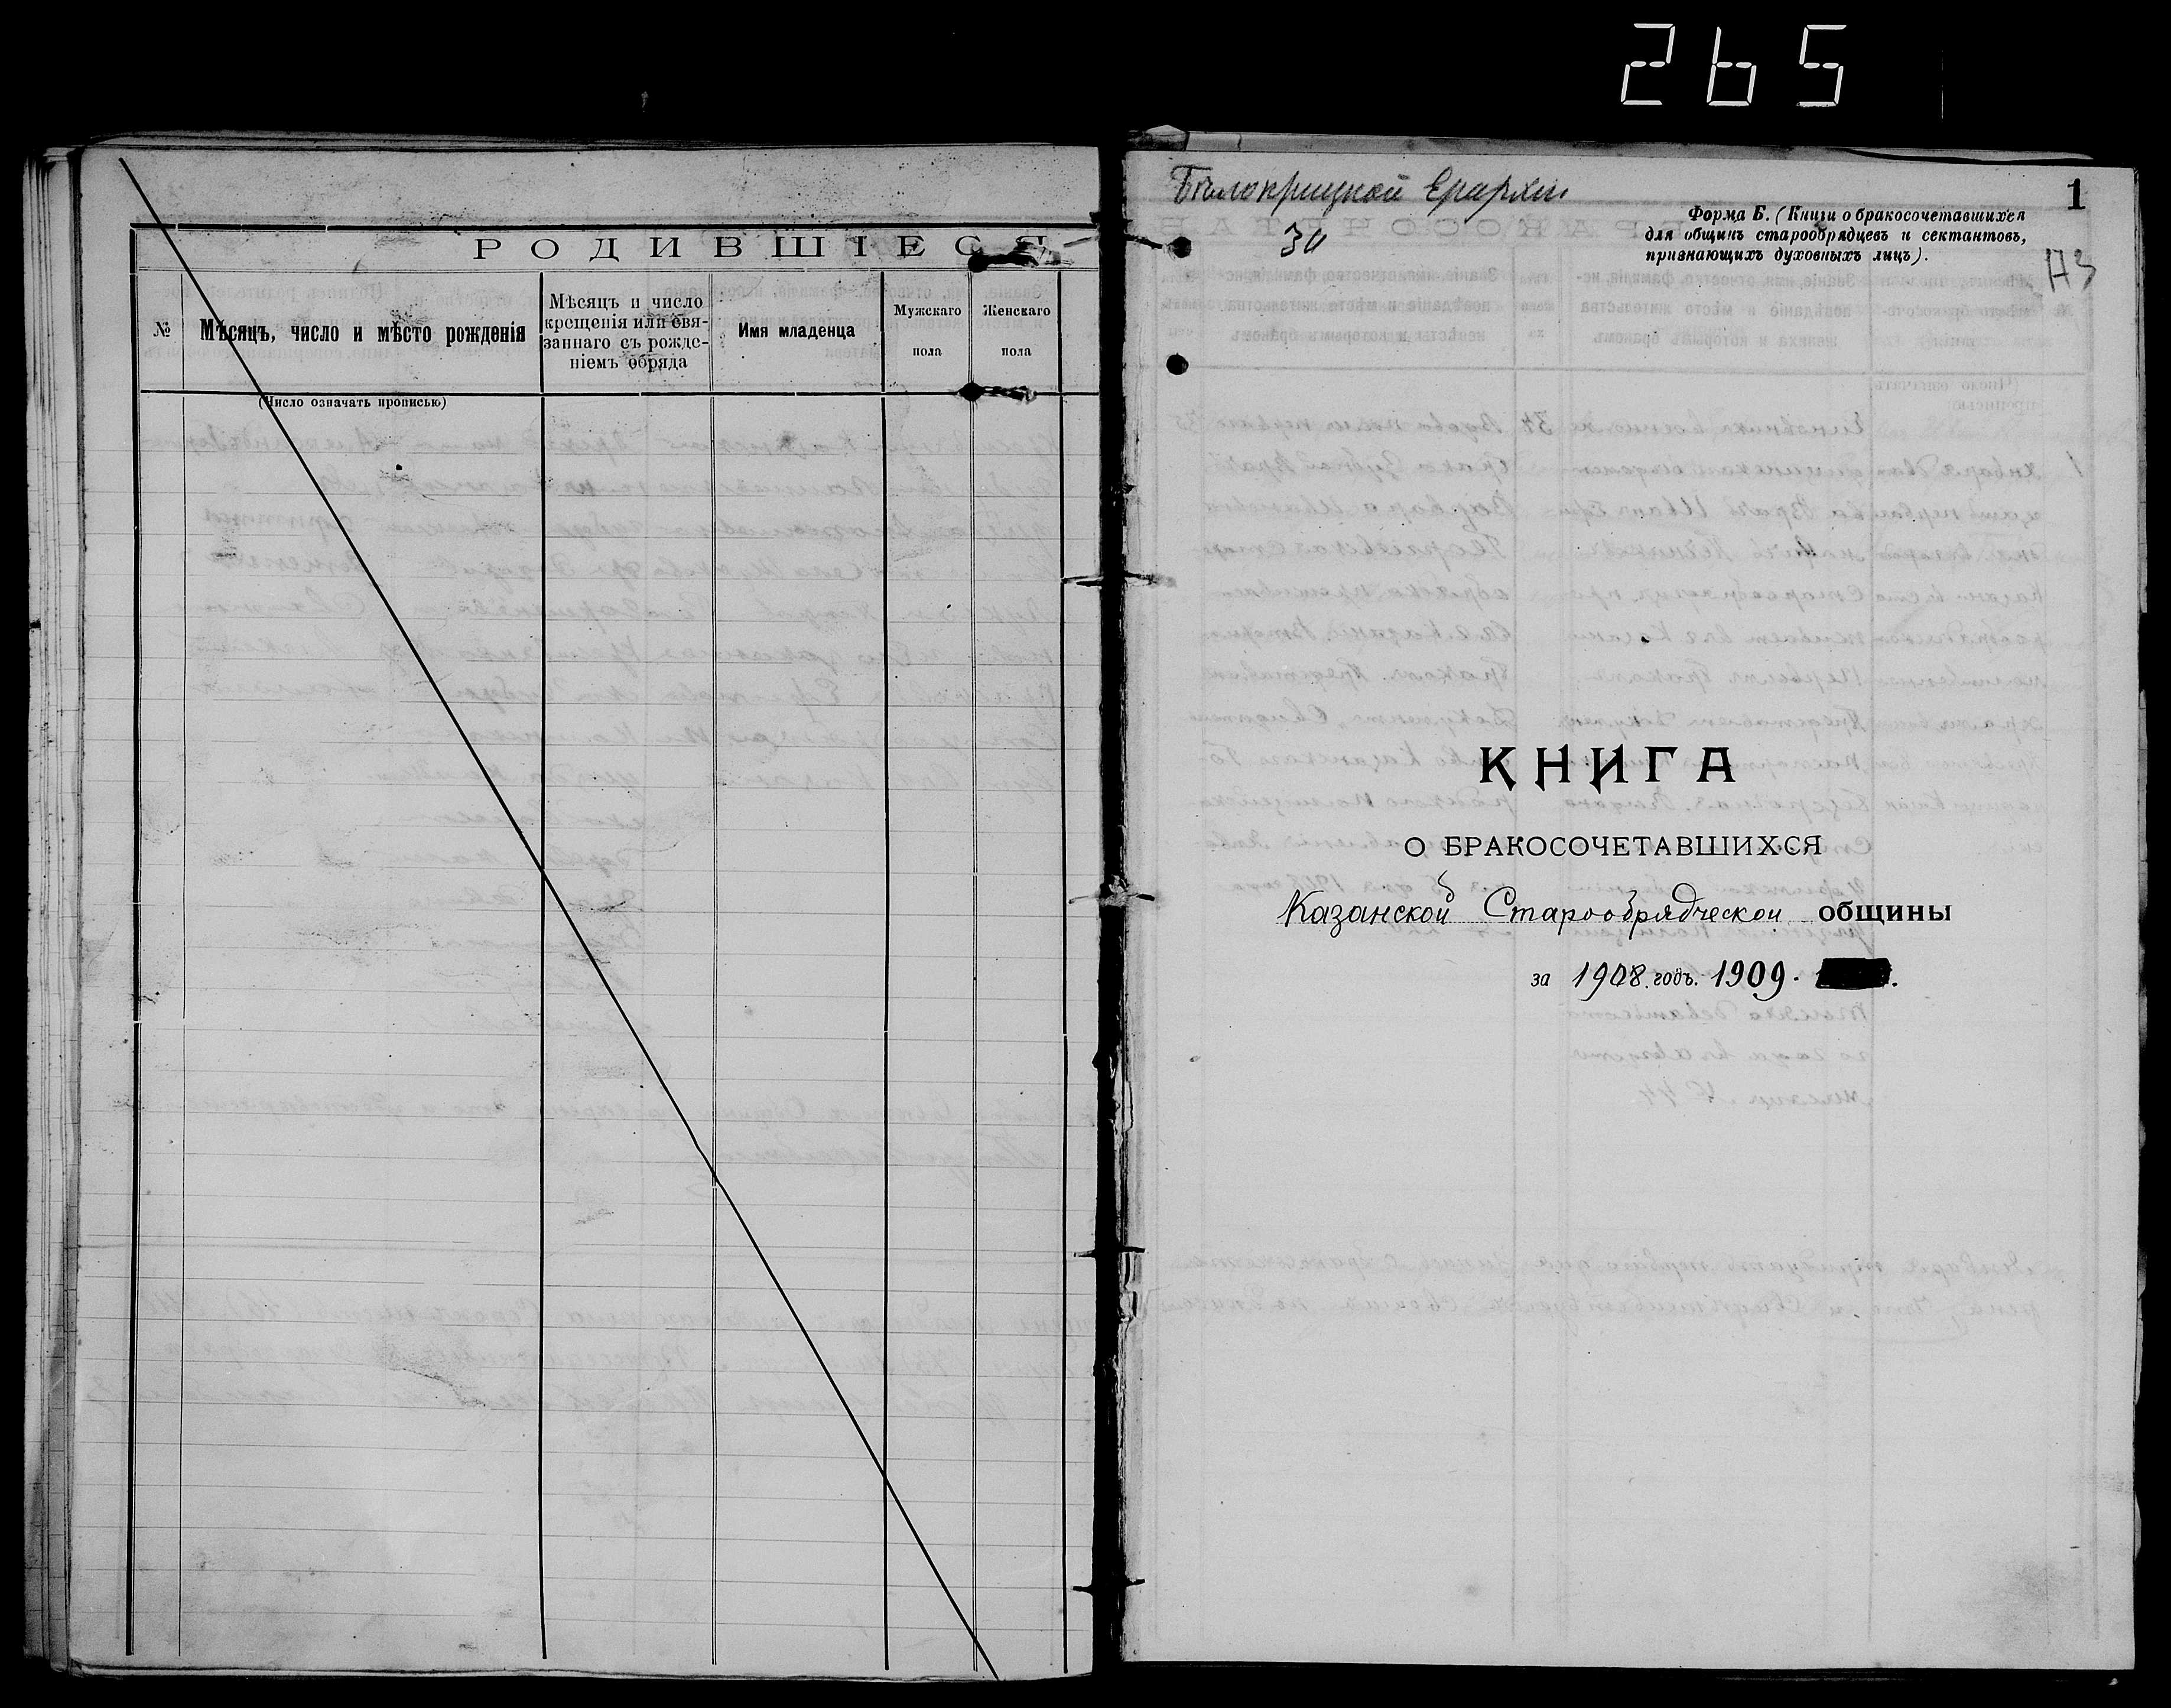 265
РОДИВШІЕСЯ
№
Мѣсяцъ, число и мѣсто рожденія
Мѣсяцъ и число
крещенія или свя-
заннаго съ рожде-
ніемъ обряда
Имя младенца
Мужскаго
пола
Женскаго
пола
(Число означать прописью)
Бѣлокрицкой Ерархіи
30
1
Форма Б. (Книги о бракосочетавшихся
для общинъ старообрядцевъ и сектантовъ,
признающихъ духовныхъ лицъ).
КНИГА
О БРАКОСОЧЕТАВШИХСЯ
Казанской Старообрядческой общины
за 1908 годъ. 1909.